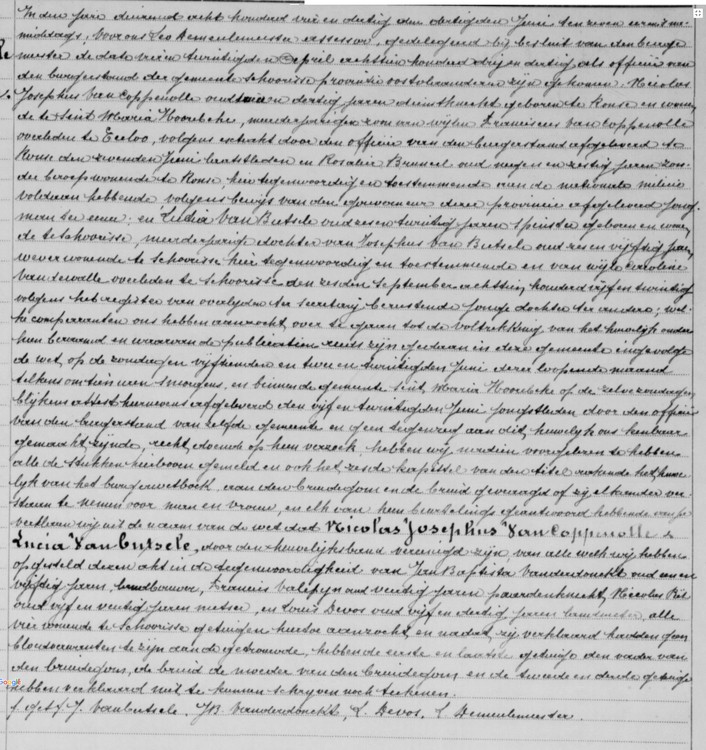 In den jare duizend acht honderd drie en dertig den dertigsten Juni ten zeven uren voormid-
middags, voor ons Leo Demeulemeester assessor, gedelegeerd bij besluit van den burge-
meester de dato vier en twintigsten April achttien honderd drij en dertig als officier van
den burgerstand der gemeente Schoorisse provincie oostvlaanderen zijn gekomen: Nicolas
Josephus Van Coppenolle oud en dertig jaren geboren te Ronse en wonen-
de te Sint Maria Hoorebeke, meerderjarigen zoon van wijlen Franciscus Van Coppenolle
overleden te Eecloo, volgens extrakt door den officier van den burgerstand afgeleverd te
Ronse den Juni laatstleden en Rosalia Bruneel oud negen en zestig jaren zon-
der beroep wonende te Ronse, hier tegenwoordig en toestemmende aan de nationale militie
voldaan hebbende volgens bewijs van den gouverneur dezer provincie afgeleverd jong-
man ter eene; en Lucia Van Butsele oud zes en twintig jaren spinster geboren en wonen-
de te Schoorisse, meerderjarige dochter van Josephus Van Butsele oud zes en vijftig jaren
wever wonende te Schoorisse hier tegenwoordig en toestemmende en van wijle Caroline
Vandewalle overleden te Schoorisse den zesden September achttien honderd vijf en twintig
volgens het register van overlijden ter secretarij berustende jonge dochter ter andere; wel-
ke comparanten ons hebben aanzocht, over te gaan tot de voltrekking van het huwelijk onder
hen beraamd en waarvan de publicatien reeds zijn gedaan in deze gemeente ingevolge
de wet, op de zondagen vijftienden en twee en twintigsten Juni dezer loopende maand
telkens om tien uren smorgens, en binnen de gemeente Sint Maria Hoorebeke op de zelve zondagen
blijkens attest hiernevens afgeleverd den vijf en twintigsten Juni jongstleden door den officier
van den burgerstand van zelfde gemeente en geen tegenweer aan dit huwelijk ons kenbaar
gemaakt zijnde, recht doende op hun verzoek, hebben wij nadien voorgelezen te hebben
alle de stukken hierboven gemeld en ook het zesde kapittel van den titel rakende het huwe-
lijk van het burgerwetboek, aan den bruidegom en de bruid gevraagd of zij elkander ver-
staan te nemen voor man en vrouw, en elk van hen beurtelings geantwoord hebbende van ja
verklaren wij uit de naam van de wet dat Nicolas Josephus Van Coppenolle &
Lucia Van Butsele, door den huwelijksband vereenigd zijn; van alle welk wij hebben
opgesteld dezen akt in de tegenwoordigheid van Jan Baptista Vanderdonckt oud een en
vijftig jaren, landbouwer, Francies Valepijn oud veertig jaren paardenknecht, Nicolas Piet
oud vijf en veertig jaren metser, en Louis Devos oud vijf en dertig jaren landmeter, alle
vier wonende te Schoorisse getuigen hiertoe aanzocht, en nadat zij verklaard hadden geen
bloedverwanten te zijn aan de getrouwde, hebben de eerste en laatste getuige den vader van
den bruidegom, de bruid de moeder van den bruidegom en de tweede en derde getuige
hebben verklaard niet te kunnen schryven noch teekenen.
(get.) J. Vanbutsele. JB Vanderdonckt, L. Devos, L Demeulemeester.